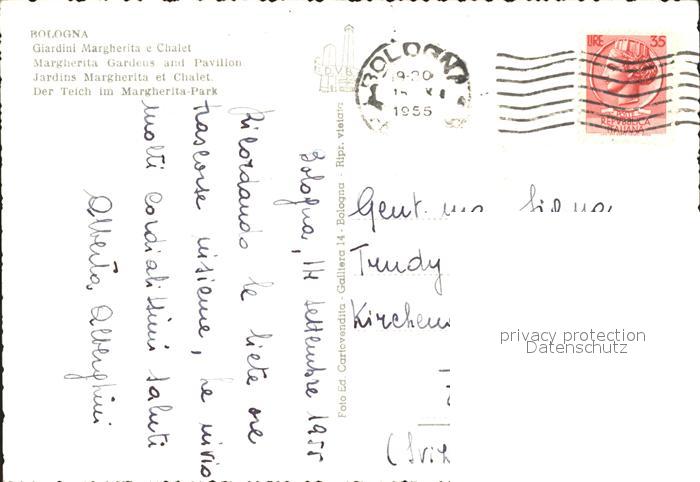 BOLOGNA
Giardini Margherita e Chalet
Margherita Gardens und Pavilion
Jardins Margherita et Chalet.
Der Teich im Margherita-Park
BOLOGNA
19-20
XI
1955
LIRE 35
POSTE
REPVBBLICA
ITALIANA
Foto Ed. Cartovendita - Galliera 14 - Bologna - Ripr. vietata
Bologna, 14 settembre 1955
Ricordando le liete ore
trascorse insieme, Le invio
molti cordialissimi saluti
Alberta Alberghini
Gent.ma Sig.na
Trudy
(Sviz
privacy protection
Datenschutz